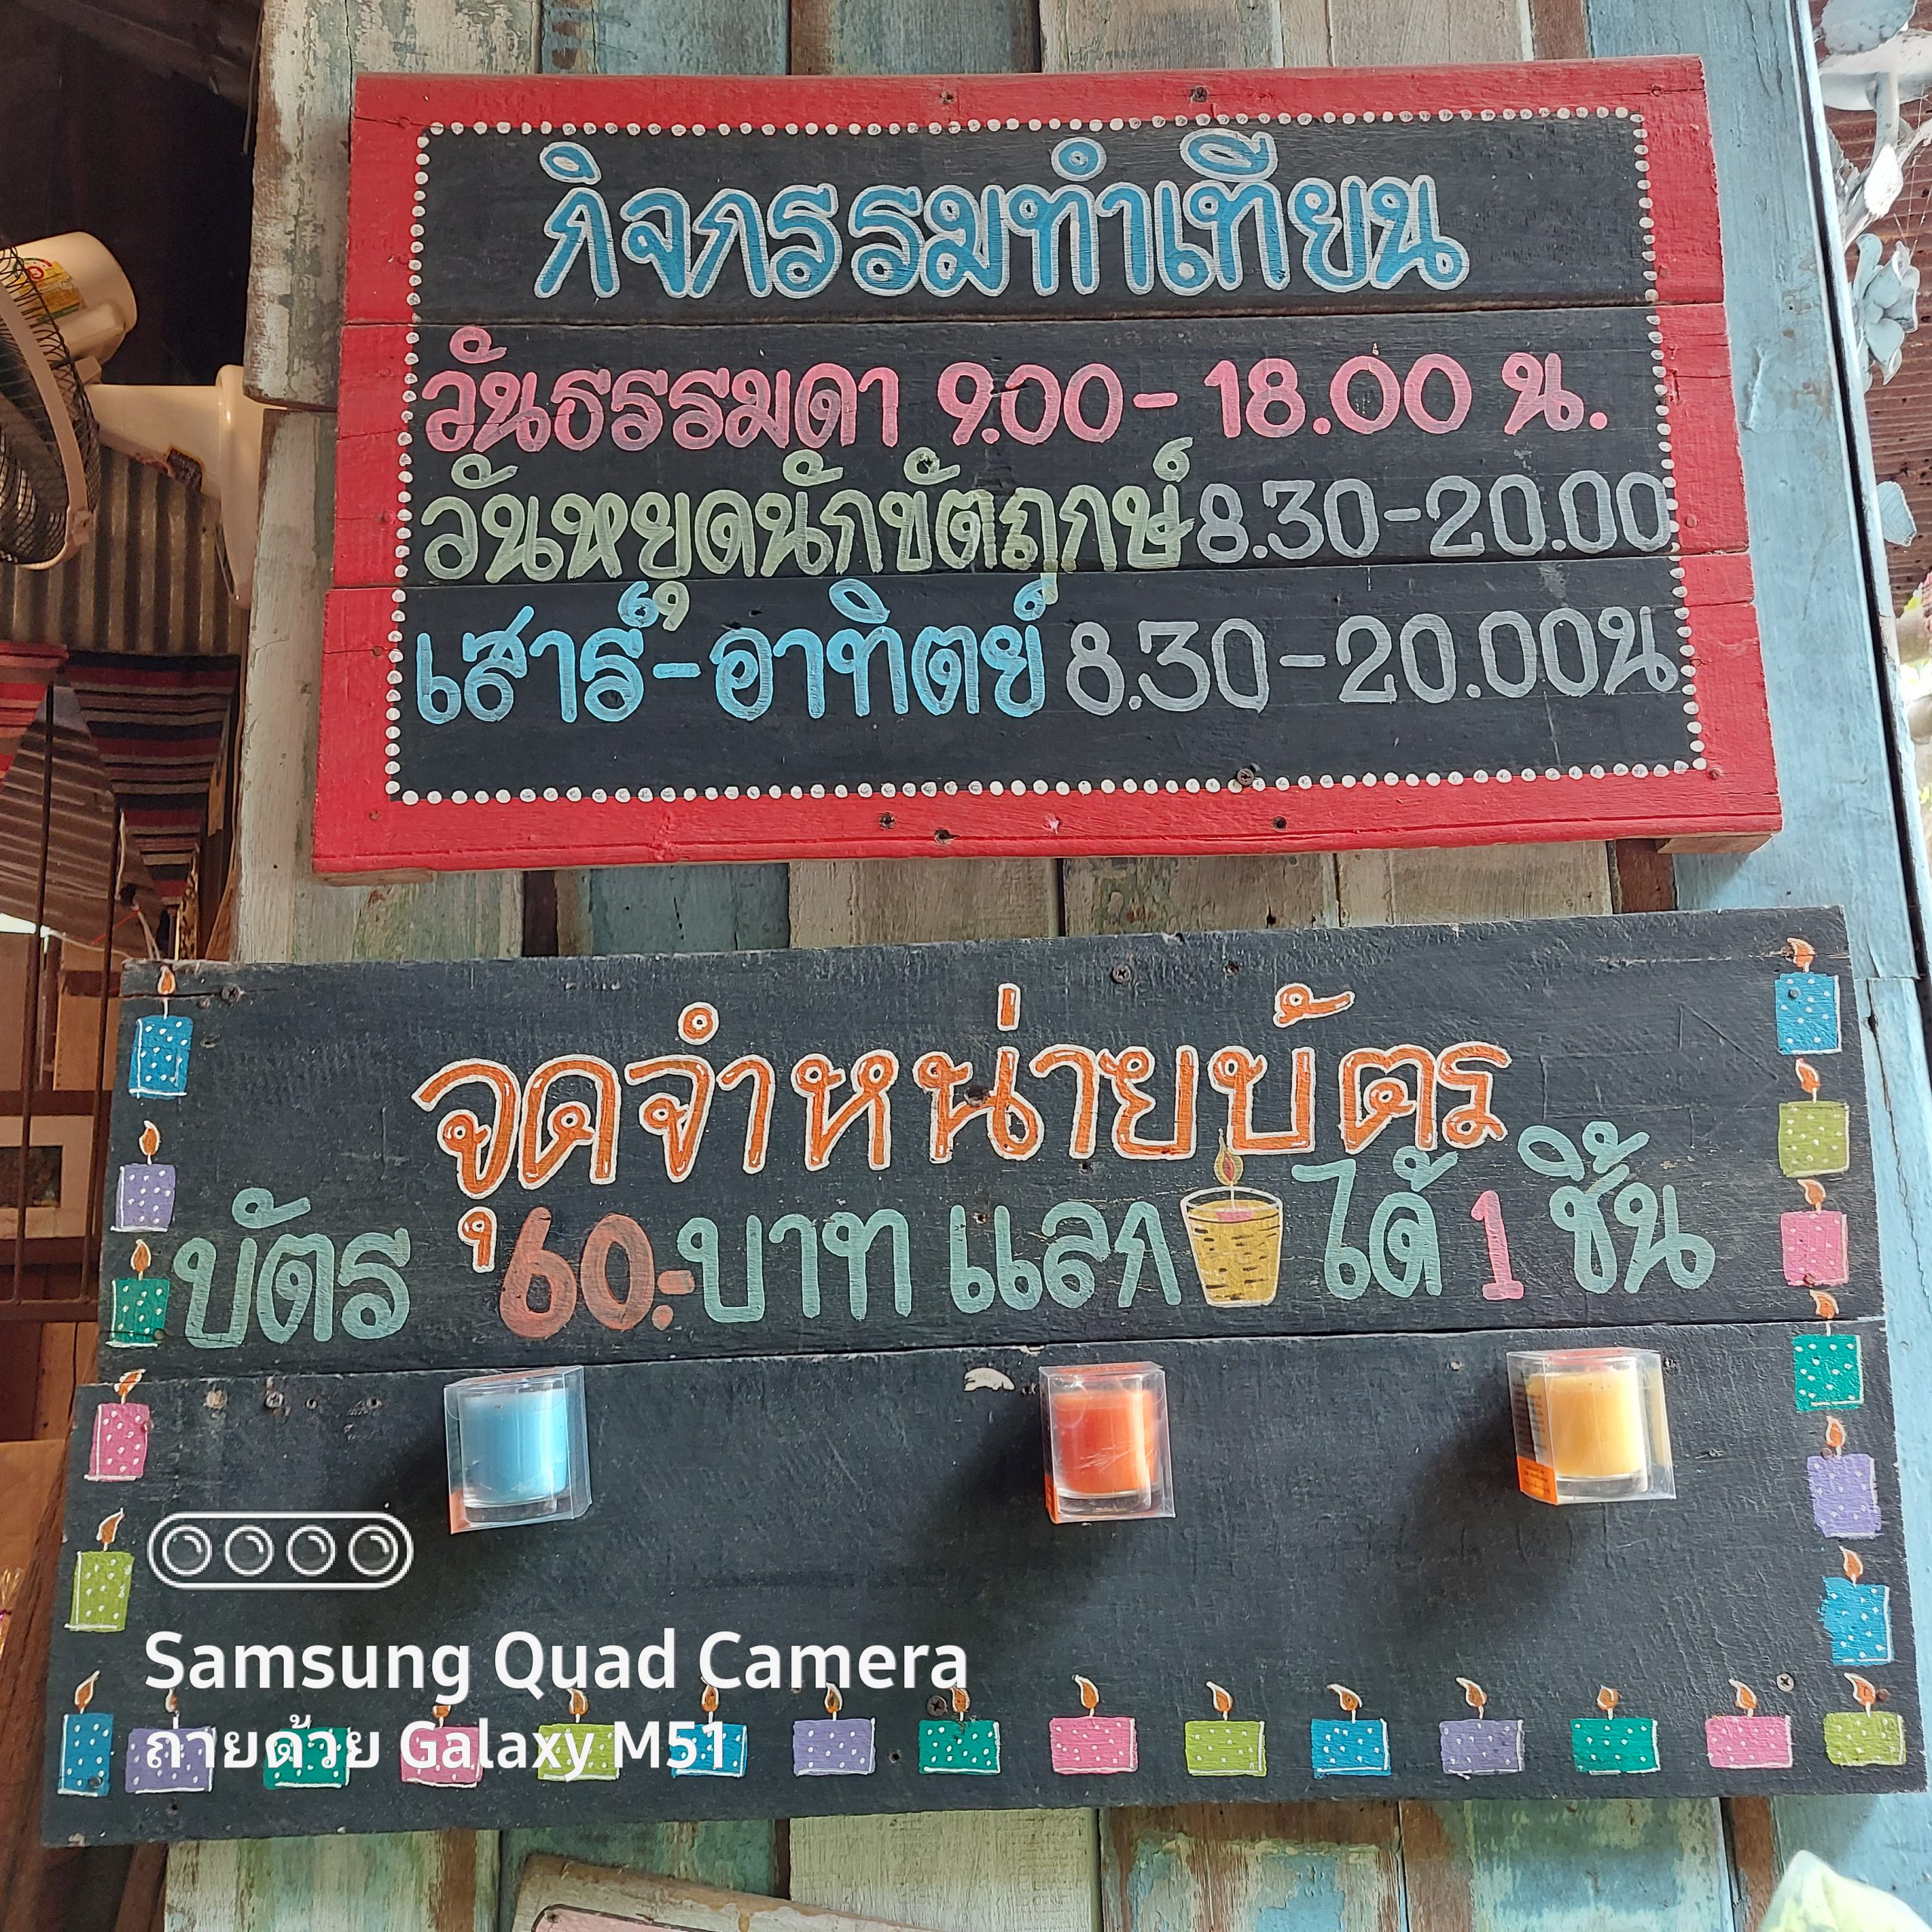 กิจกรรมทำเทียน
วันธรรมดา 9.00 - 18.00 น.
วันหยุดนักขัตฤกษ์ 8.30 - 20.00
เสาร์ - อาทิตย์ 8.30 - 20.00 น
จุดจำหน่ายบัตร
บัตร 60.- บาท แลก ได้ 1 ชิ้น
Samsung Quad Camera
ถ่ายด้วย Galaxy M51